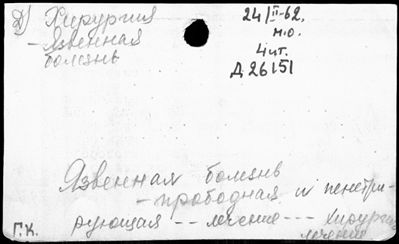 Д) Хирургия
- Язвенная
болезнь
24/II-62.
м.о.
4 ит.
Д 26151
Язвенная болезнь
- прободная и пенетри-
рующая -- лечение --- хирургич
лечение
Г.К.